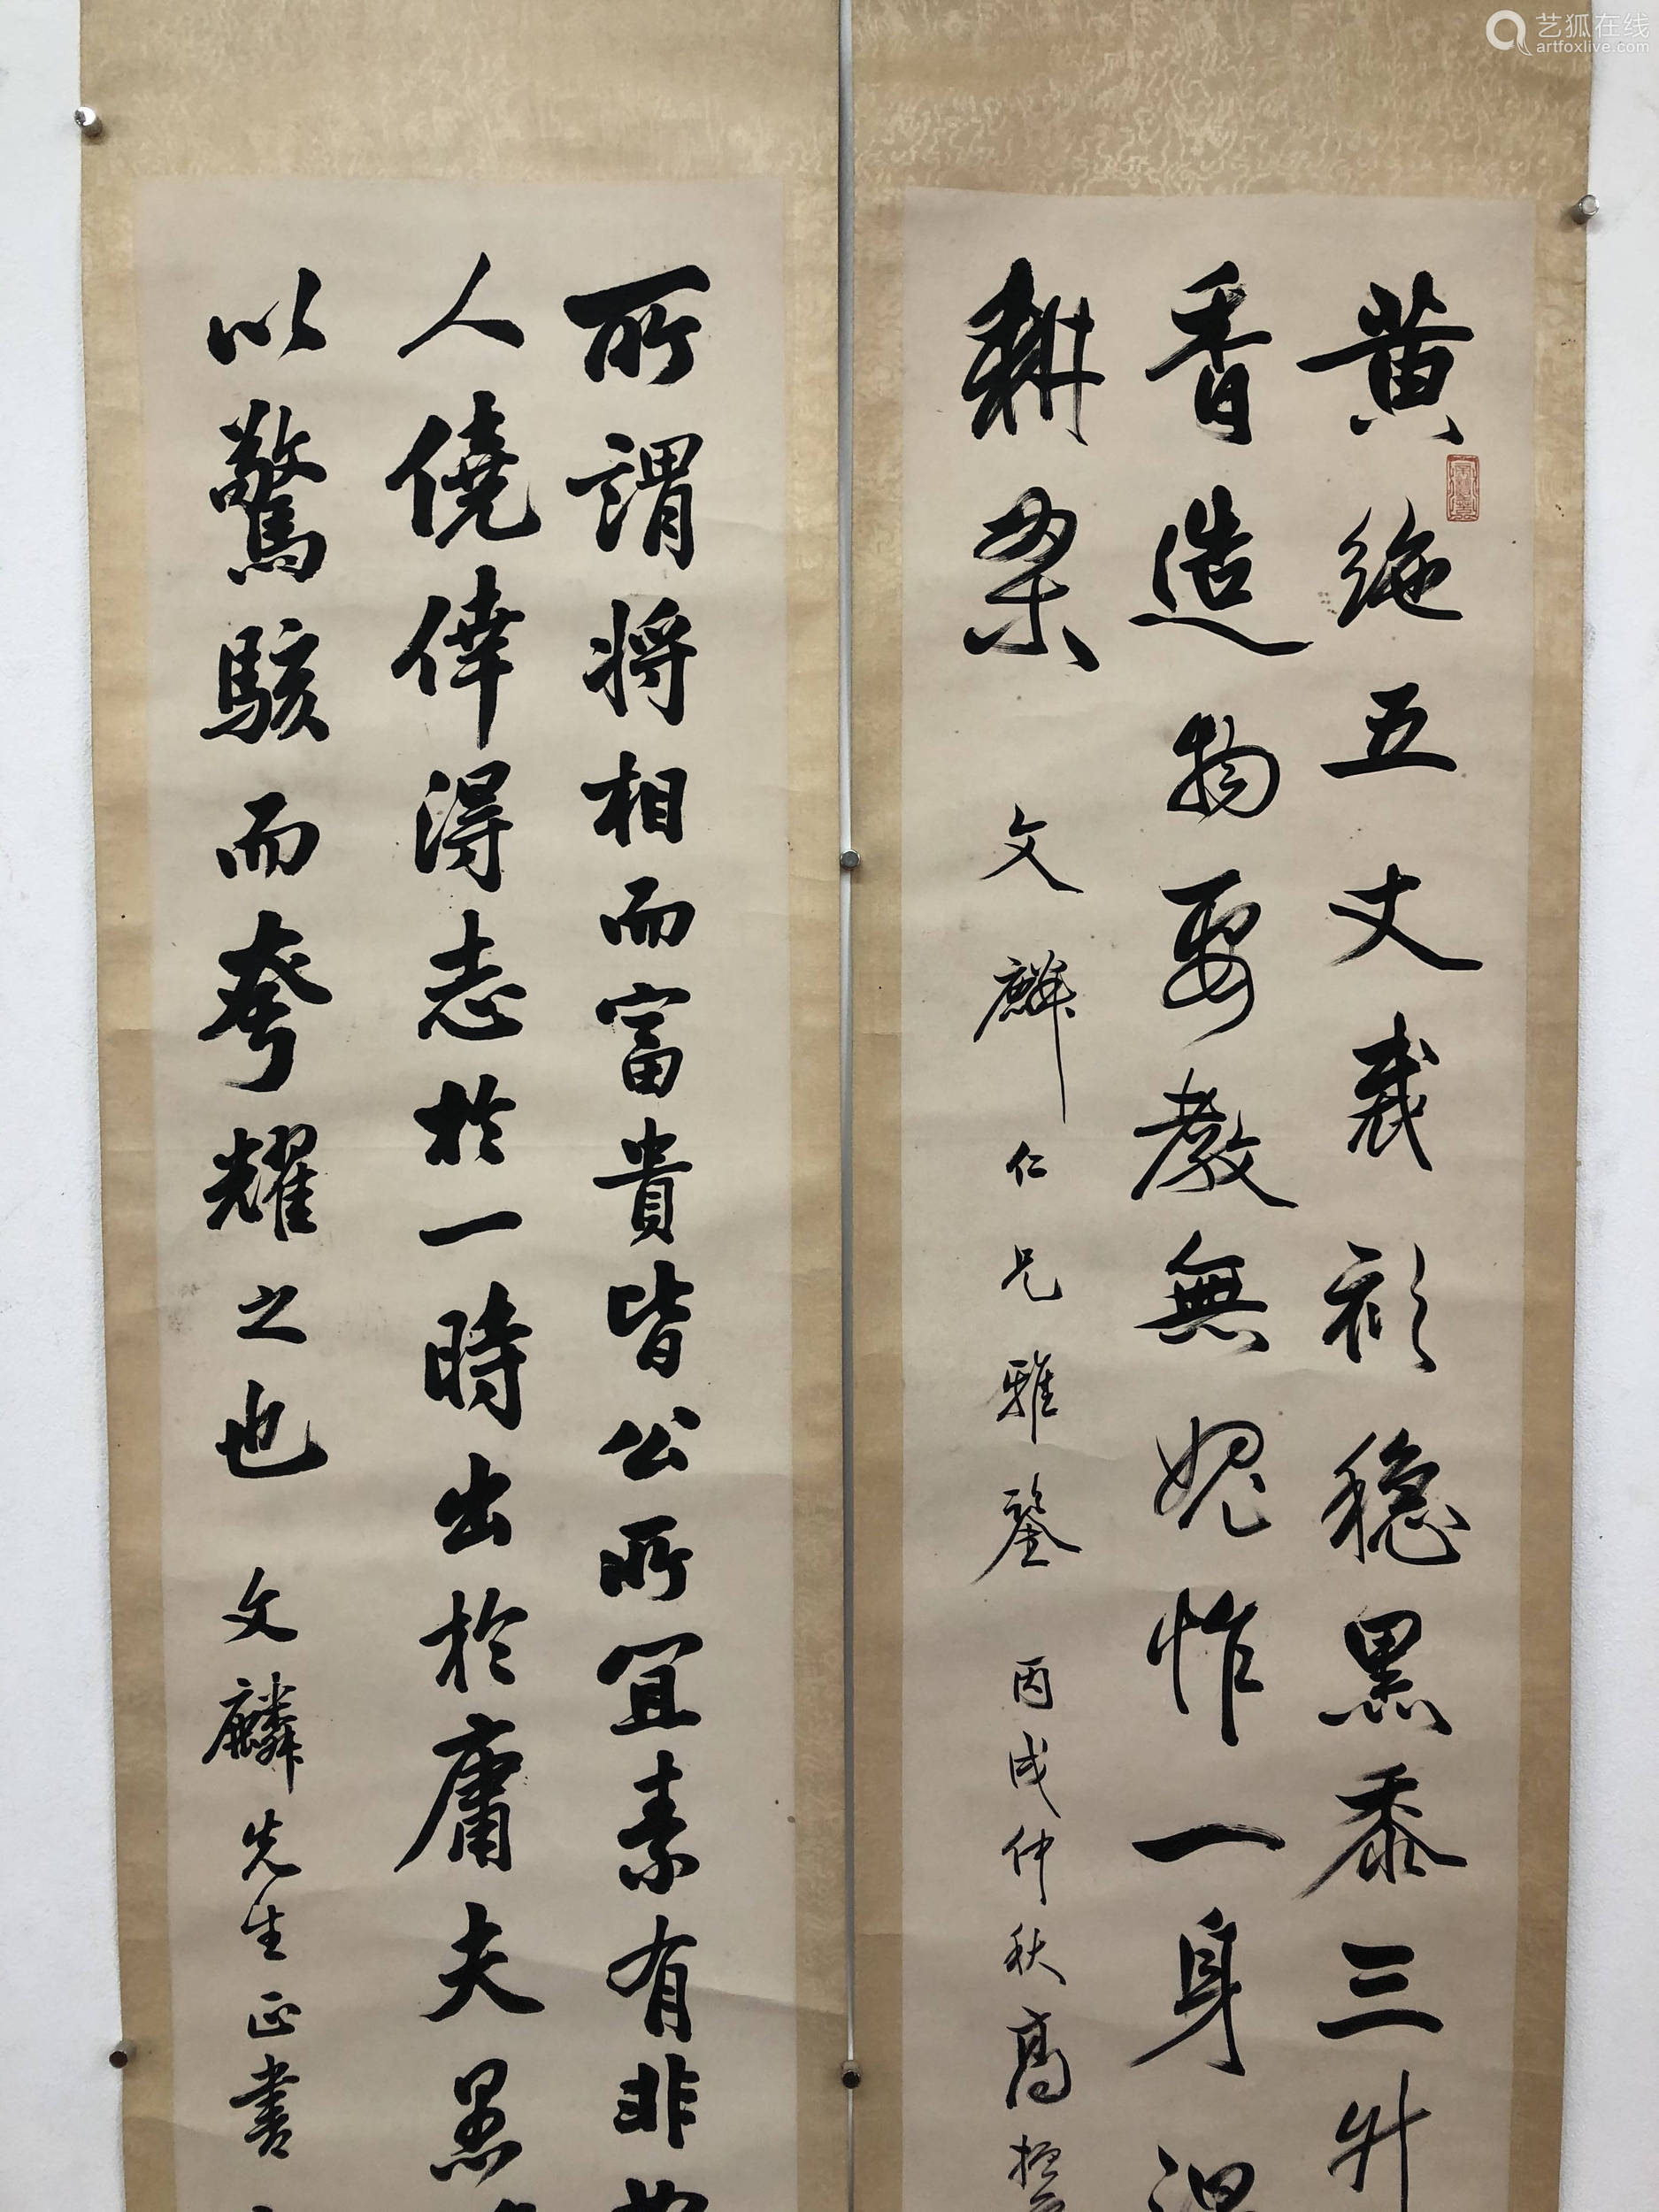 艺狐在线
artfoxlive.com
黄絁五丈裁衫穩黑黍三升
香造物要教無媿怍一身
耕桑 文麟仁兄雅鑒 丙戌仲秋高
所謂將相而富貴皆公所宜素有非
人僥倖得志於一時出於庸夫愚
以驚駭而夸耀之也 文麟先生正書